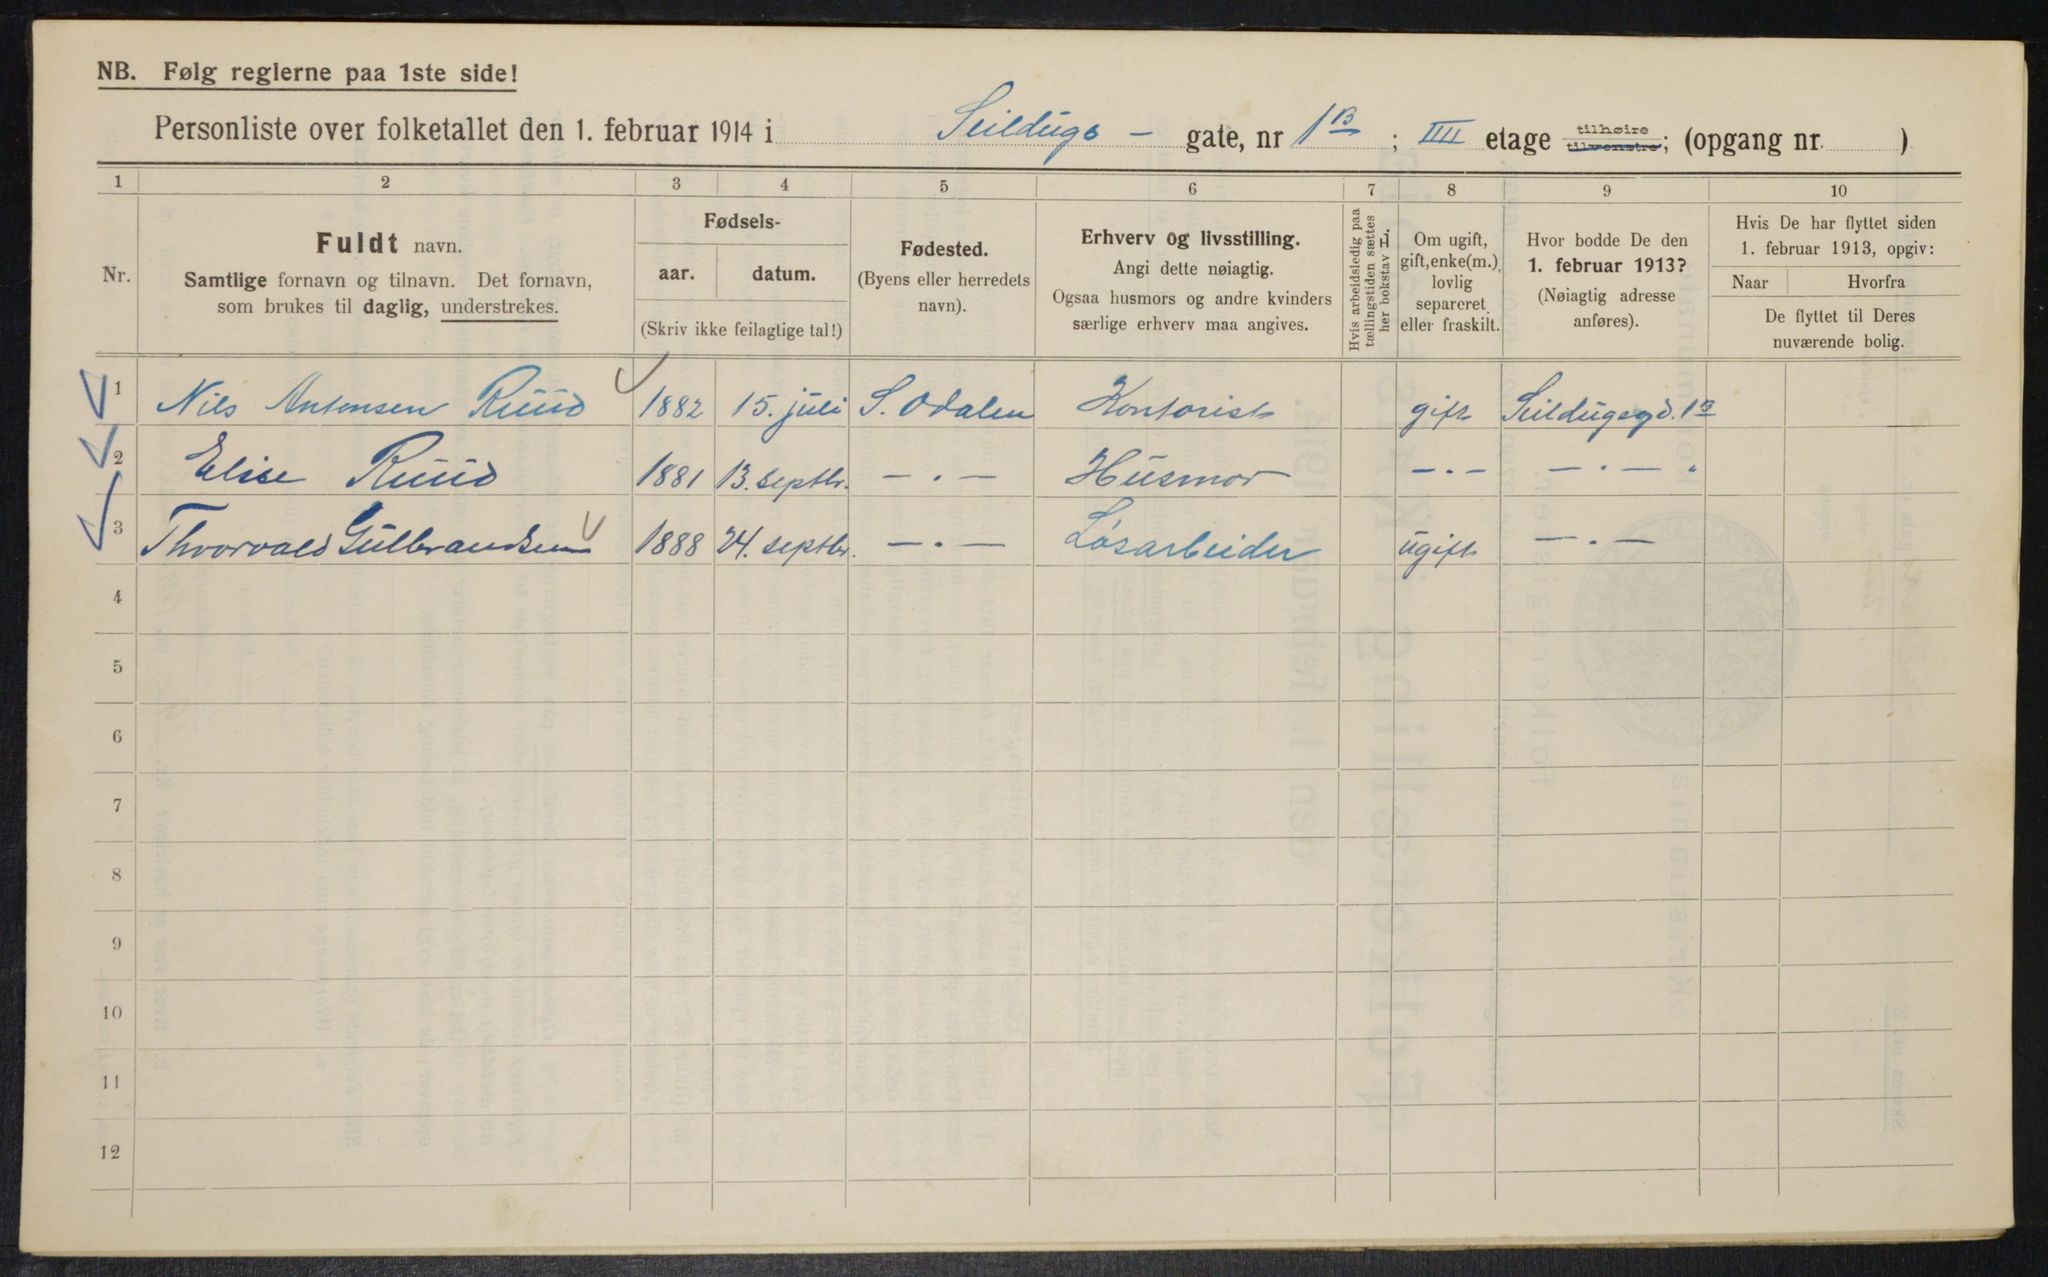 NB. Følg reglerne paa 1ste side!
Personliste over folketallet den 1. februar 1914 i Seildugs - gate, nr 1B; IIII etage tilhøire tilvenstre; (opgang nr. )
1 2 3 4 5 6 7 8 9 10
Nr.
Fuldt navn.
Samtlige fornavn og tilnavn. Det fornavn,
som brukes til daglig, understrekes.
Fødsels-
aar. datum.
(Skriv ikke feilagtige tal!)
Fødested.
(Byens eller herredets
navn).
Erhverv og livsstilling.
Angi dette nøiagtig.
Ogsaa husmors og andre kvinders
særlige erhverv maa angives.
Hvis arbeidsledig paa
tællingstiden sættes
her bokstav H.
Om ugift,
gift, enke(m.),
lovlig
separeret
eller fraskilt.
Hvor bodde De den
1. februar 1913?
(Nøiagtig adresse
anføres).
Hvis De har flyttet siden
1. februar 1913, opgiv:
Naar Hvorfra
De flyttet til Deres
nuværende bolig.
1 Nils Antonsen Ruud 1882 15. juli S. Odalen Kontorist gift Seildugsgd. 1B
2 Elise Ruud 1881 13. septbr. — . — Husmor — . — — . — "
3 Thvorvald Gulbrandsen 1888 24. septbr. — . — Løsarbeider ugift — . —
4
5
6
7
8
9
10
11
12